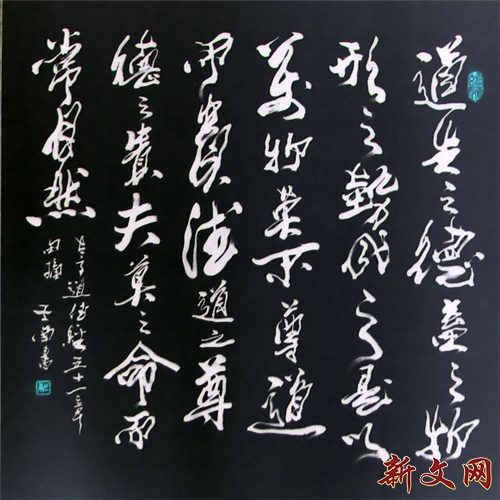 道生之德畜之物
形之勢成之是以
萬物莫不尊道
而貴德道之尊
德之貴夫莫之命而
常自然
老子道德經五十一章
書
新文网